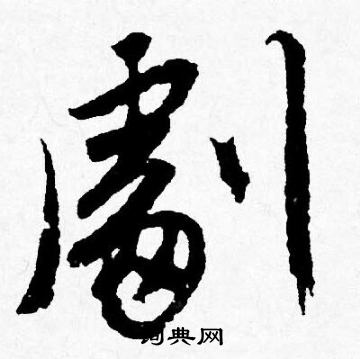 劇
词典网